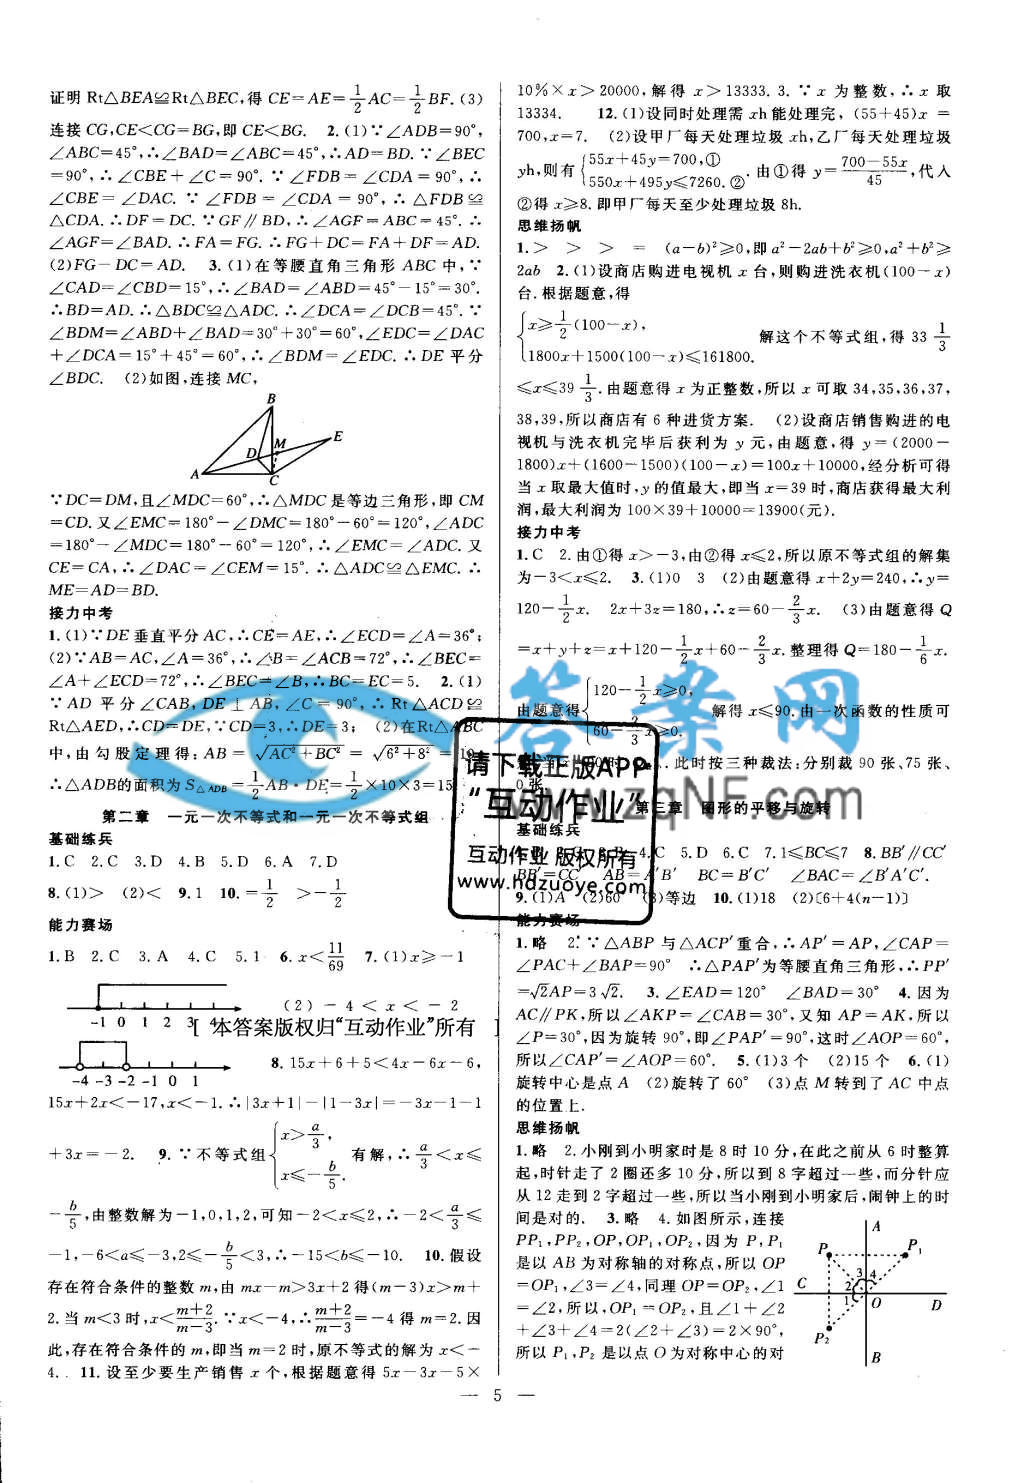 证明 Rt△BEA≌Rt△BEC,得 CE=AE=1/2 AC=1/2 BF. (3)
连接 CG,CE<CG=BG,即 CE<BG. 2. (1)∵∠ADB=90°,
∠ABC=45°,∴∠BAD=∠ABC=45°,∴AD=BD. ∵∠BEC
=90°,∴∠CBE+∠C=90°. ∵∠FDB=∠CDA=90°,∴
∠CBE=∠DAC. ∵∠FDB=∠CDA=90°,∴△FDB≌
△CDA. ∴DF=DC. ∵GF∥BD,∴∠AGF=ABC=45°. ∴
∠AGF=∠BAD. ∴FA=FG. ∴FG+DC=FA+DF=AD.
(2)FG-DC=AD. 3. (1)在等腰直角三角形 ABC 中,∵
∠CAD=∠CBD=15°,∴∠BAD=∠ABD=45°-15°=30°.
∴BD=AD. ∴△BDC≌△ADC. ∴∠DCA=∠DCB=45°. ∵
∠BDM=∠ABD+∠BAD=30°+30°=60°,∠EDC=∠DAC
+∠DCA=15°+45°=60°,∴∠BDM=∠EDC. ∴DE 平分
∠BDC. (2)如图,连接 MC,
B
E
M
D
A
C
∵DC=DM,且∠MDC=60°,∴△MDC 是等边三角形,即 CM
=CD. 又∠EMC=180°-∠DMC=180°-60°=120°,∠ADC
=180°-∠MDC=180°-60°=120°,∴∠EMC=∠ADC. 又
CE=CA,∴∠DAC=∠CEM=15°. ∴△ADC≌△EMC. ∴
ME=AD=BD.
接力中考
1. (1)∵DE 垂直平分 AC,∴CE=AE,∴∠ECD=∠A=36°;
(2)∵AB=AC,∠A=36°,∴∠B=∠ACB=72°,∴∠BEC=
∠A+∠ECD=72°,∴∠BEC=∠B,∴BC=EC=5. 2. (1)
∵AD 平分∠CAB, DE⊥AB,∠C=90°,∴Rt△ACD≌
Rt△AED,∴CD=DE,∵CD=3,∴DE=3; (2)在Rt△ABC
中,由勾股定理得:AB=√AC²+BC²=√6²+8²=10,
∴△ADB的面积为 S△ADB=1/2 AB·DE=1/2×10×3=15
第二章 一元一次不等式和一元一次不等式组
基础练兵
1. C 2. C 3. D 4. B 5. D 6. A 7. D
8. (1)> (2)< 9. 1 10. =1/2 >-1/2
能力赛场
1. B 2. C 3. A 4. C 5. 1 6. x<11/69 7. (1)x≥-1
-1 0 1 2 3 4
(2) -4<x<-2
[ 本答案版权归“互动作业”所有 ]
-4 -3 -2 -1 0 1
8. 15x+6+5<4x-6x-6,
15x+2x<-17,x<-1. ∴|3x+1|-|1-3x|=-3x-1-1
+3x=-2. 9. ∵不等式组{x>a/3, x≤-b/5. 有解,∴a/3<x≤
-b/5,由整数解为-1,0,1,2,可知-2<x≤2,∴-2<a/3≤
-1,-6<a≤-3,2≤-b/5<3,∴-15<b≤-10. 10. 假设
存在符合条件的整数 m,由 mx-m>3x+2 得(m-3)x>m+
2. 当 m<3 时,x<m+2/m-3. ∵x<-4,∴m+2/m-3=-4 得 m=2. 因
此,存在符合条件的 m,即当 m=2 时,原不等式的解为 x<-
4. 11. 设至少要生产销售 x 个,根据题意得 5x-3x-5×
10%×x>20000,解得 x>13333.3. ∵x 为整数,∴x 取
13334. 12. (1)设同时处理需 xh能处理完,(55+45)x=
700,x=7. (2)设甲厂每天处理垃圾 xh,乙厂每天处理垃圾
yh,则有{55x+45y=700,① 550x+495y≤7260.② . 由①得 y=700-55x/45,代入
②得 x≥8. 即甲厂每天至少处理垃圾 8h.
思维扬帆
1. > > > = (a-b)²≥0,即 a²-2ab+b²≥0,a²+b²≥
2ab 2. (1)设商店购进电视机 x 台,则购进洗衣机(100-x)
台. 根据题意,得
{x≥1/2(100-x), 1800x+1500(100-x)≤161800. 解这个不等式组,得 33 1/3
≤x≤39 1/3. 由题意得 x 为正整数,所以 x 可取 34,35,36,37,
38,39,所以商店有 6 种进货方案. (2)设商店销售购进的电
视机与洗衣机完毕后获利为 y 元,由题意,得 y=(2000-
1800)x+(1600-1500)(100-x)=100x+10000,经分析可得
当 x 取最大值时,y 的值最大,即当 x=39 时,商店获得最大利
润,最大利润为 100×39+10000=13900(元).
接力中考
1. C 2. 由①得 x>-3,由②得 x≤2,所以原不等式组的解集
为-3<x≤2. 3. (1)0 3 (2)由题意得 x+2y=240,∴y=
120-1/2 x. 2x+3z=180,∴z=60-2/3 x. (3)由题意得 Q
=x+y+z=x+120-1/2 x+60-2/3 x. 整理得 Q=180-1/6 x.
由题意得{120-1/2 x≥0, 60-2/3 x≥0. 解得 x≤90. 由一次函数的性质可
此时按三种裁法:分别裁 90 张、75 张、
0 张.
第三章 图形的平移与旋转
基础练兵
4. C 5. D 6. C 7. 1≤BC≤7 8. BB′∥CC′
BB′=CC′ AB=A′B′ BC=B′C′ ∠BAC=∠B′A′C′.
9. (1)A (2)60° (3)等边 10. (1)18 (2)〔6+4(n-1)〕
能力赛场
1. 略 2. ∵△ABP 与△ACP′重合,∴AP′=AP,∠CAP=
∠PAC+∠BAP=90° ∴△PAP′为等腰直角三角形,∴PP′
=√2AP=3√2. 3. ∠EAD=120° ∠BAD=30° 4. 因为
AC∥PK,所以∠AKP=∠CAB=30°,又知 AP=AK,所以
∠P=30°,因为旋转 90°,即∠PAP′=90°,这时∠AOP=60°,
所以∠CAP′=∠AOP=60°. 5. (1)3 个 (2)15 个 6. (1)
旋转中心是点 A (2)旋转了 60° (3)点 M 转到了 AC 中点
的位置上.
思维扬帆
1. 略 2. 小刚到小明家时是 8 时 10 分,在此之前从 6 时整算
起,时针走了 2 圈还多 10 分,所以到 8 字超过一些,而分针应
从 12 走到 2 字超过一些,所以当小刚到小明家后,闹钟上的时
间是对的. 3. 略 4. 如图所示,连接
PP₁,PP₂,OP,OP₁,OP₂,因为 P,P₁
是以 AB 为对称轴的对称点,所以 OP
=OP₁,∠3=∠4,同理 OP=OP₂,∠1
=∠2,所以,OP₁=OP₂,且∠1+∠2
+∠3+∠4=2(∠2+∠3)=2×90°,
所以 P₁,P₂ 是以点 O 为对称中心的对
A
P
P₁
3 4
C
2
1
O
D
P₂
B
— 5 —
答案网
www.zqNF.com
请下载正版APP
“互动作业”
互动作业 版权所有
www.hdzuoye.com